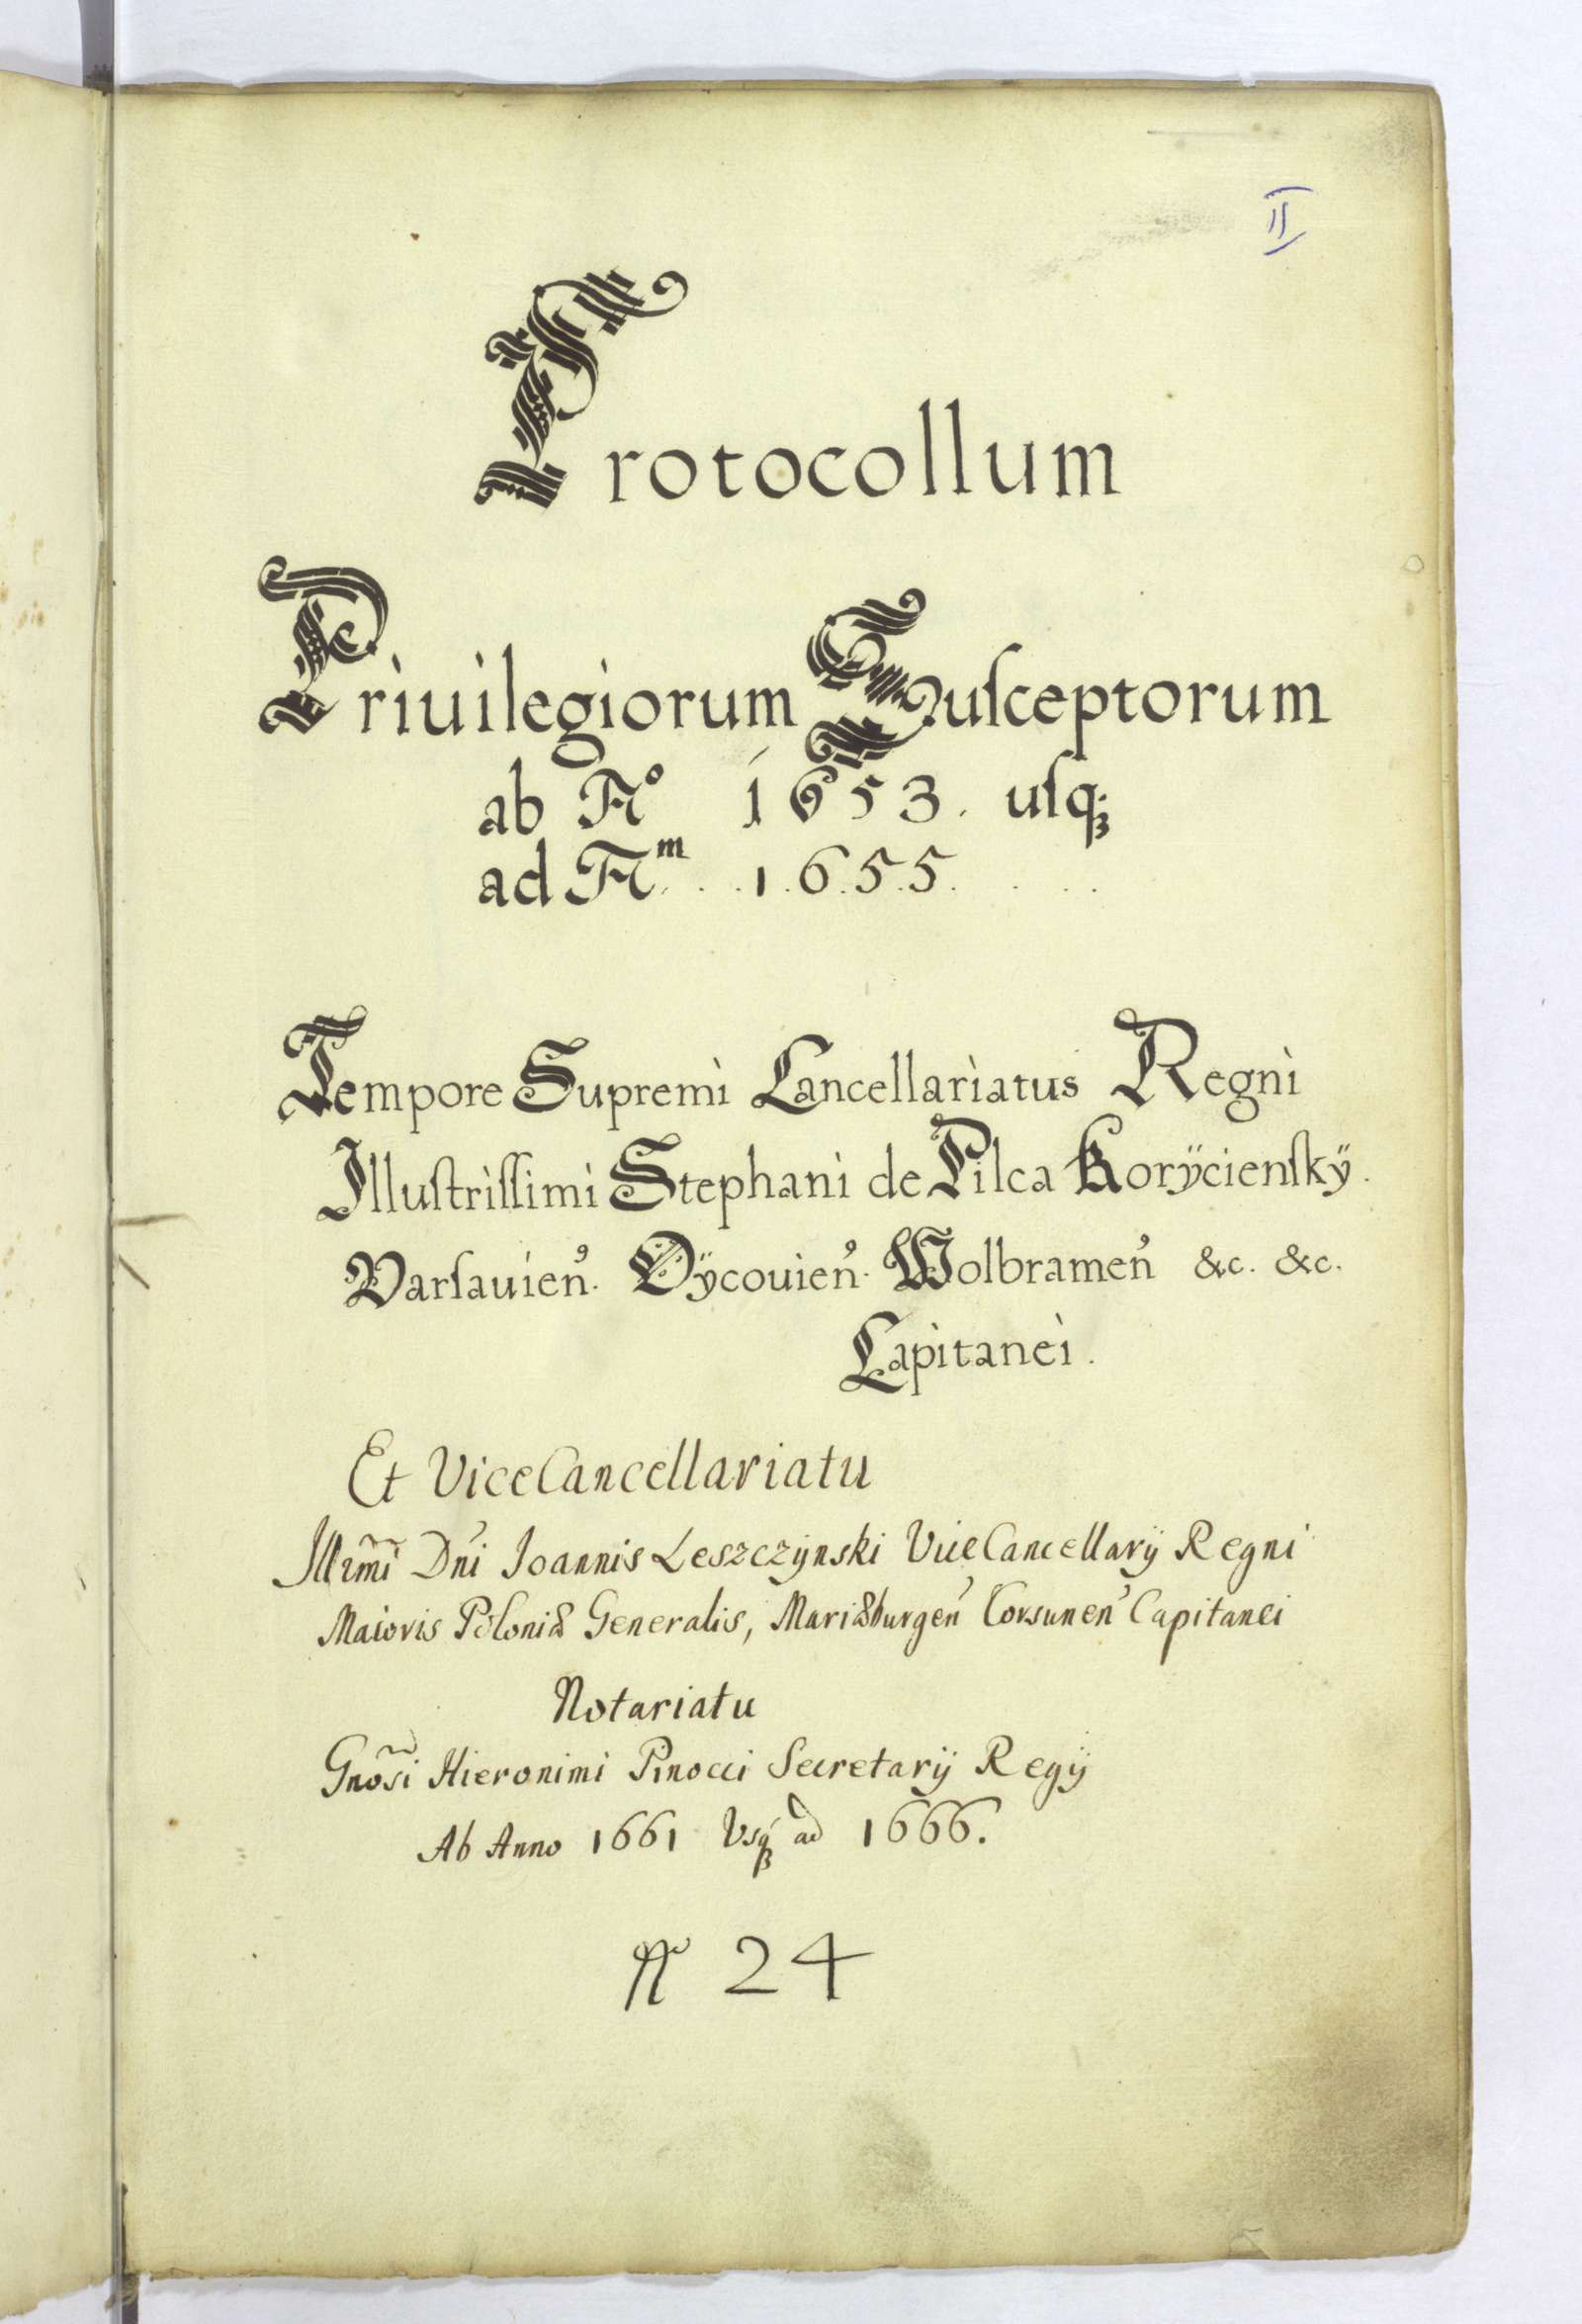 II
Protocollum
Priuilegiorum Suſceptorum
ab Aº 1653. uſq;
ad Aᵐ. . . 1.6.5.5. . .
Tempore Supremi Cancellariatus Regni
Illuſtriſſimi Stephani de Pilca Korÿcienſkÿ.
Varſauien̉. Oÿcouien̉. Wolbramen̉ &c. &c.
Capitanei.
Et ViceCancellariatu
Illr̃mi Dn̉i Ioannis Leszczÿnski ViceCancellarÿ Regni
Maioris Poloniæ Generalis, Mariæburgen̉ Corsunen̉ Capitanei
Notariatu
Gnõsi Hieronimi Pinocci Secretarÿ Regÿ
Ab Anno 1661 Vsq; ad 1666.
24